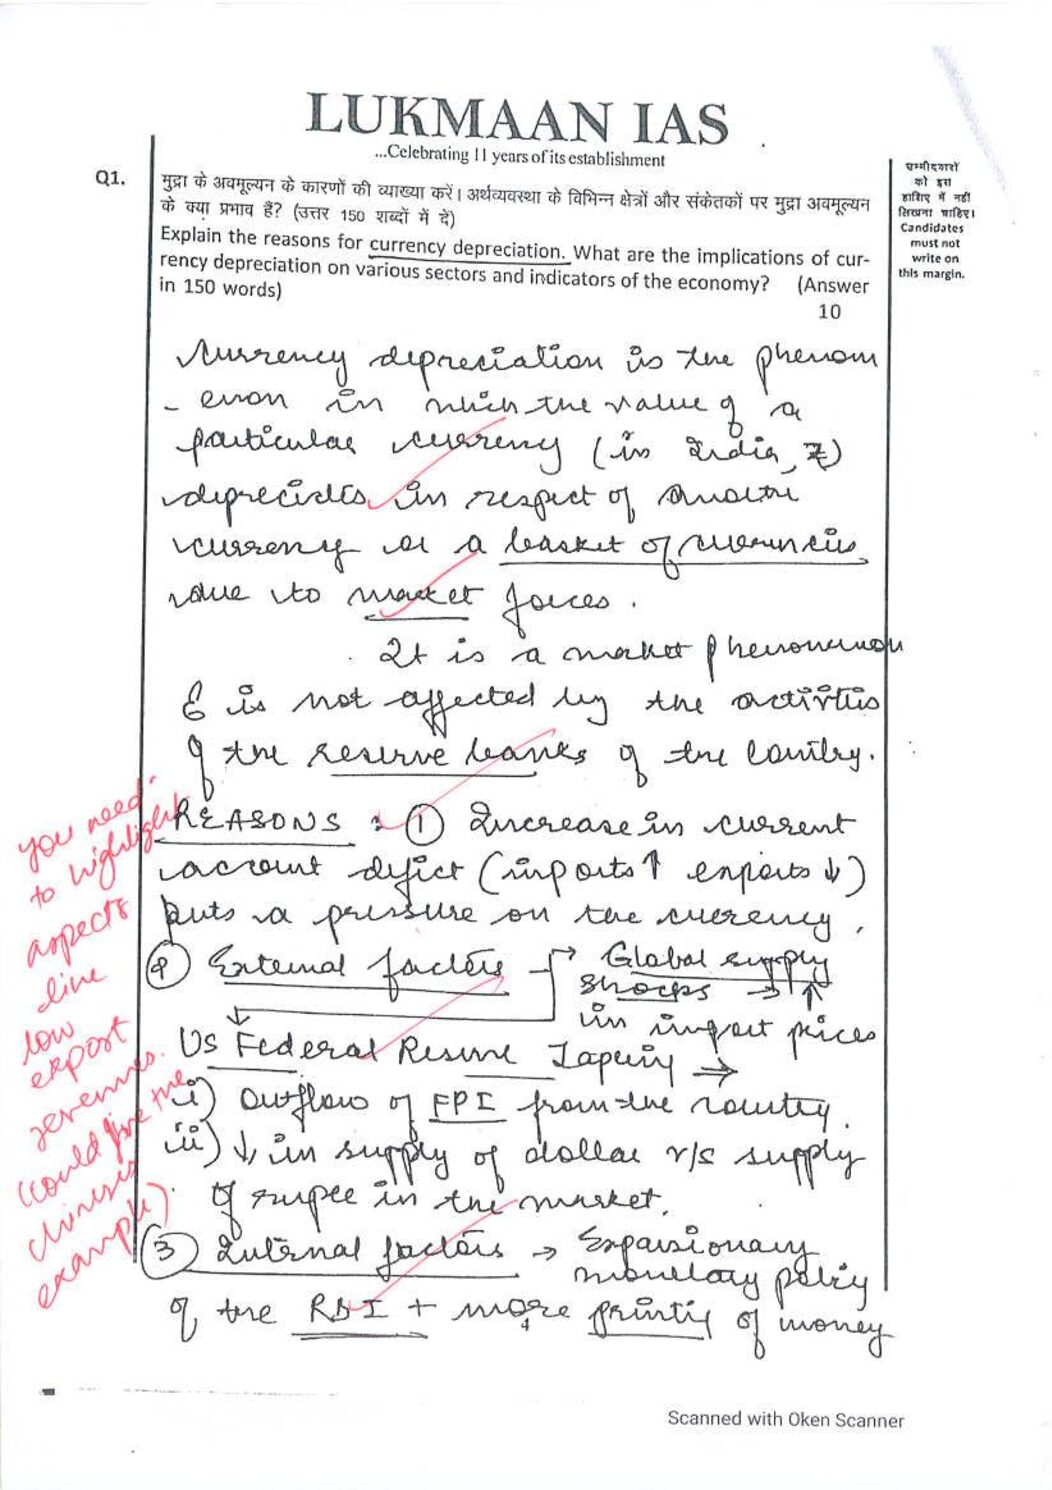 LUKMAAN IAS
...Celebrating 11 years of its establishment
Q1.
मुद्रा के अवमूल्यन के कारणों की व्याख्या करें। अर्थव्यवस्था के विभिन्न क्षेत्रों और संकेतकों पर मुद्रा अवमूल्यन
के क्या प्रभाव हैं? (उत्तर 150 शब्दों में दें)
Explain the reasons for currency depreciation. What are the implications of cur-
rency depreciation on various sectors and indicators of the economy? (Answer
in 150 words)
10
उम्मीदवारों
को इस
हाशिए में नहीं
लिखना चाहिए।
Candidates
must not
write on
this margin.
Currency depreciation is the phenom
- enon in which the value of a
particular currency (in India, ₹)
depreciates in respect of another
currency or a basket of currencies
due to market forces.
It is a market phenomenon
& is not affected by the activities
of the reserve banks of the country.
REASONS : ① Increase in current
account deficit (imports ↑ exports ↓)
puts a pressure on the currency.
② External factors → Global supply
shocks → ↑
in import prices
US Federal Reserve Tapering →
i) Outflow of FPI from the country.
ii) ↓ in supply of dollar v/s supply
of rupee in the market.
③ Internal factors → Expansionary
monetary policy
of the RBI + more printing of money
you need
to highlight
aspects
like
low
export
revenues.
(could give the
chinese
example)
Scanned with Oken Scanner